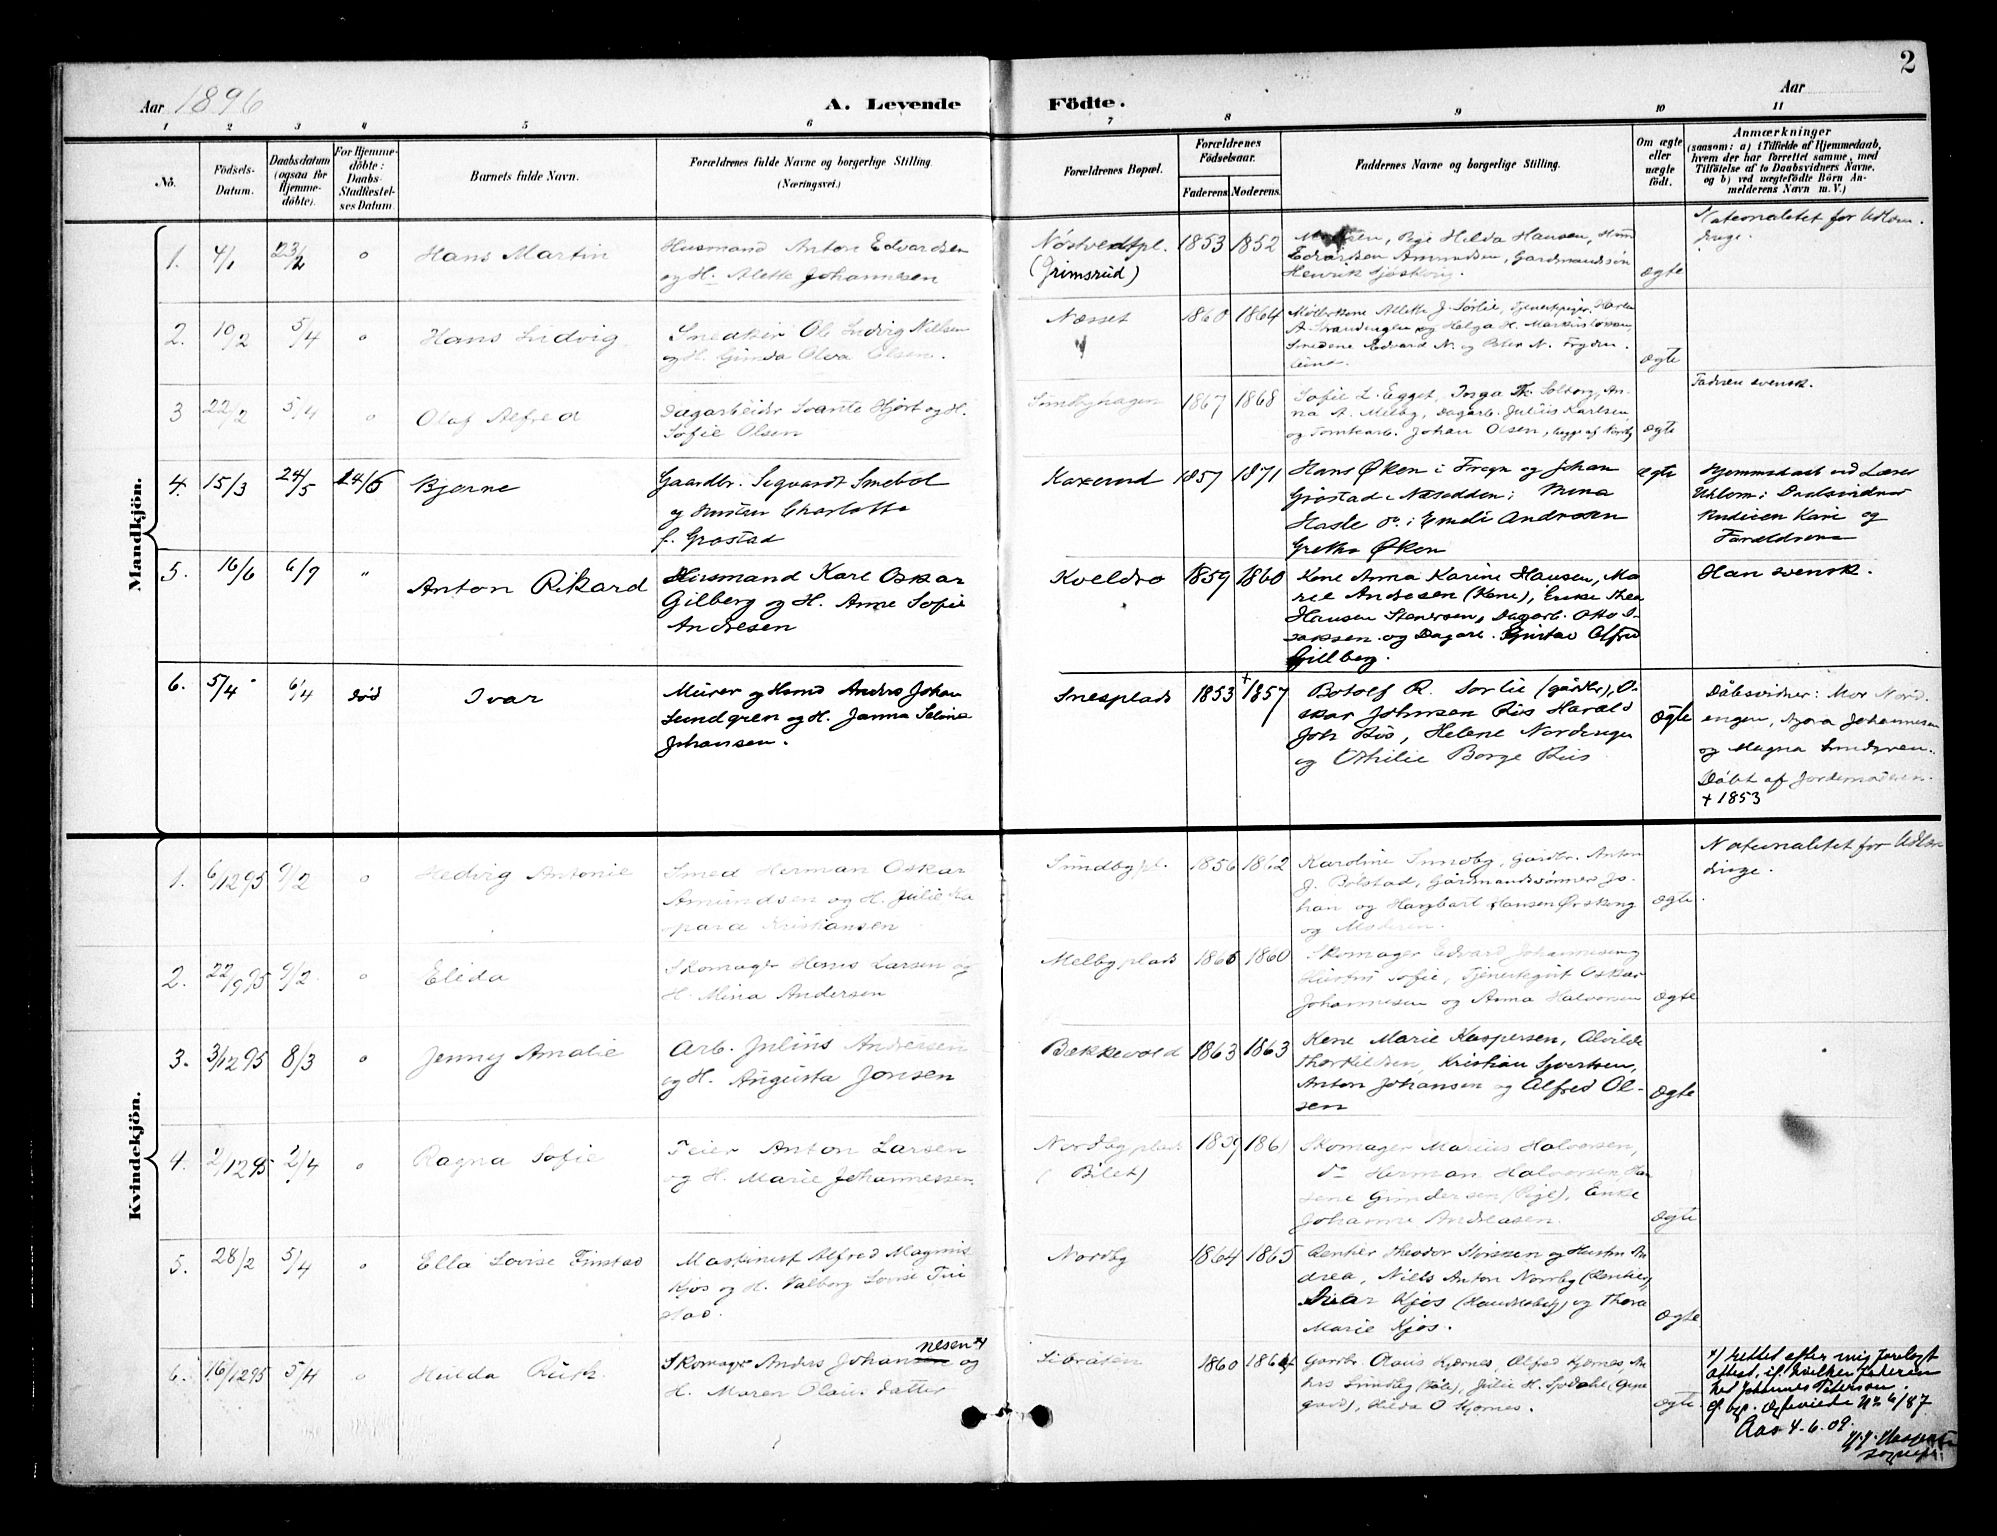 2
Aar 1896
A. Levende Födte.
Aar
1 2 3 4 5 6 7 8 9 10 11
No.
Födsels-
Datum.
Daabsdatum
(ogsaa for
Hjemme-
döbte).
For Hjemme-
döbte:
Daabs-
Stadfæstel-
ses Datum.
Barnets fulde Navn.
Forældrenes fulde Navne og borgerlige Stilling.
(Næringsvei.)
Forældrenes Bopæl.
Forældrenes
Födselsaar.
Faderens. Moderens.
Faddernes Navne og borgerlige Stilling.
Om ægte
eller
uægte
födt.
Anmærkninger
(saasom: a) i Tilfælde af Hjemmedaab,
hvem der har forrettet samme, med
Tilföielse af to Daabsvidners Navne,
og b) ved uægtefödte Börn An-
melderens Navn m. V.)
Mandkjön.
1. 4/1 23/2 "
Hans Martin
Husmand Anton Edvardsen
og H. Alette Johannesen
Nøstvedtpl.
(Grimsrud)
1853 1852
Pige Hilda Hansen,
Edvardsen Amundsen, Gardmandssøn
Henrik
ægte
Nationalitet for Udlæn-
dinge.
2. 19/2 5/4 "
Hans Ludvig
Snedker Ole Ludvig Nielsen
og H. Gunda Olva Olsen.
Næsset
1860 1864
Alette J. Sørlie,
og Helga H.
Smedene Edvard N. og Peter N. Fryden-
lund.
ægte
3 22/2 5/4 "
Olaf Alfred
Dagarbeider Svante Hjort og H.
Sofie Olsen
1867 1868
Sofie L. Egget, Inga Th. Solberg, An-
na A. Melby, Dagarb. Julius Karlsen
og Tomtearb. Johan Olsen, begge af Nordby
ægte
Faderen svensk.
4. 15/3 24/5 14/6
Bjarne
Gaardbr. Sigvardt Smebøl
og Hustru Charlotte
f. Grøstad
Kaxerud
1857 1871
Hans Øken i Frogn og Johan
Grøstad i Næsodden; Mina
Hasle do. i Emeli Andresen
Grethe Øken
ægte
Hjemmedøbt ved Lærer
Uhlom; Daabsvidner
Kari og
Forældrene
5. 16/6 6/9 "
Anton Rikard
Husmand Karl Oskar
Gilberg og H. Anne Sofie
Andresen
Kveldro
1859 1860
Kone Anna Karine Hansen, Ma-
rie Andresen (Kone), Enke Thea
Hansen Stenersen, Dagarb. Otto I-
saksen og Dagarb. Gustav Alfred
Gillberg.
Han svensk.
6. 5/4 6/4 død
Ivar
Murer og Hsmd Anders Johan
Lundgren og H. Janna Seline
Johansen.
Snesplads
1853 +1857
Botolf R. Sørlie (gårdbr), O-
skar Johnsen Ris Harald
Joh Riis, Helene Nordengen
og Othilie Borge Riis
Ægte
Døbsvidner: Mor Nord-
engen, Nora Johannesen
og Magna Lundgren.
Døbt af Jordemoderen
+ 1853
Kvindekjön.
1. 6/12 95 9/2 "
Hedvig Antonie
Smed Herman Oskar
Amundsen og H. Julie Ka-
spara Kristiansen
Sundby pl.
1856 1862
Karoline Sundby, Gårdbr. Anton
J. Bølstad, Gårdmandssønner Jo-
han og Hagbart Hansen Ørskoug
og Moderen.
ægte
Nationalitet for Udlæn-
dinge.
2. 22/9 95 9/2 "
Elida
Skomager Hans Larsen og
H. Mina Andersen
Melby plads
1866 1860
Skomager Edvard Johannesen og
Hustru Sofie, Tjenestegut Oskar
Johannesen og Anna Halvorsen
ægte
3. 3/12 95 8/3 "
Jenny Amalie
Arb. Julius Andersen
og H. Augusta Jonsen
Bækkevold
1863 1863
Kone Marie Kaspersen, Alvilde
Thorkildsen, Kristian Syvertsen,
Anton Johansen og Alfred Ol-
sen
Ægte
4. 2/12 95 2/4 "
Ragna Sofie
Feier Anton Larsen
og H. Marie Johannessen.
Nordby plads
(Bilet)
1859 1861
Skomager Marius Halvorsen,
do Herman Halvorsen, Han-
sene Gundersen (Pige), Enke
Johanne Andreasen.
Ægte
5. 28/2 5/4 "
Ella Lovise Finstad
Maskinist Alfred Magnus
Kjos og H. Valborg Lovise Fin-
stad.
Nordby
1864 1865
Rentier Theodor og Hustru An-
drea, Niels Anton Nordby (Rentier),
Kjøs (Handelsbetj) og Thora
Marie Kjøs.
Ægte
6. 16/12 95 5/4 "
Hulda Ruth.
nesen x)
Skomager Anders Johansen og
H. Maren Olausdatter
Sibråten
1860 1864
Gardbr. Olaus Kjærnes, Alfred Kjærnes An-
ders Sundby, Julie H. Sydahl
Hilda O Kjærnes.
ægte
x) rettet efter mig forelagt
attest, if. hvilken faderen
hed Johannes Petersen.
cf. No 6/87
Aas 4-6.09.
sogneprest